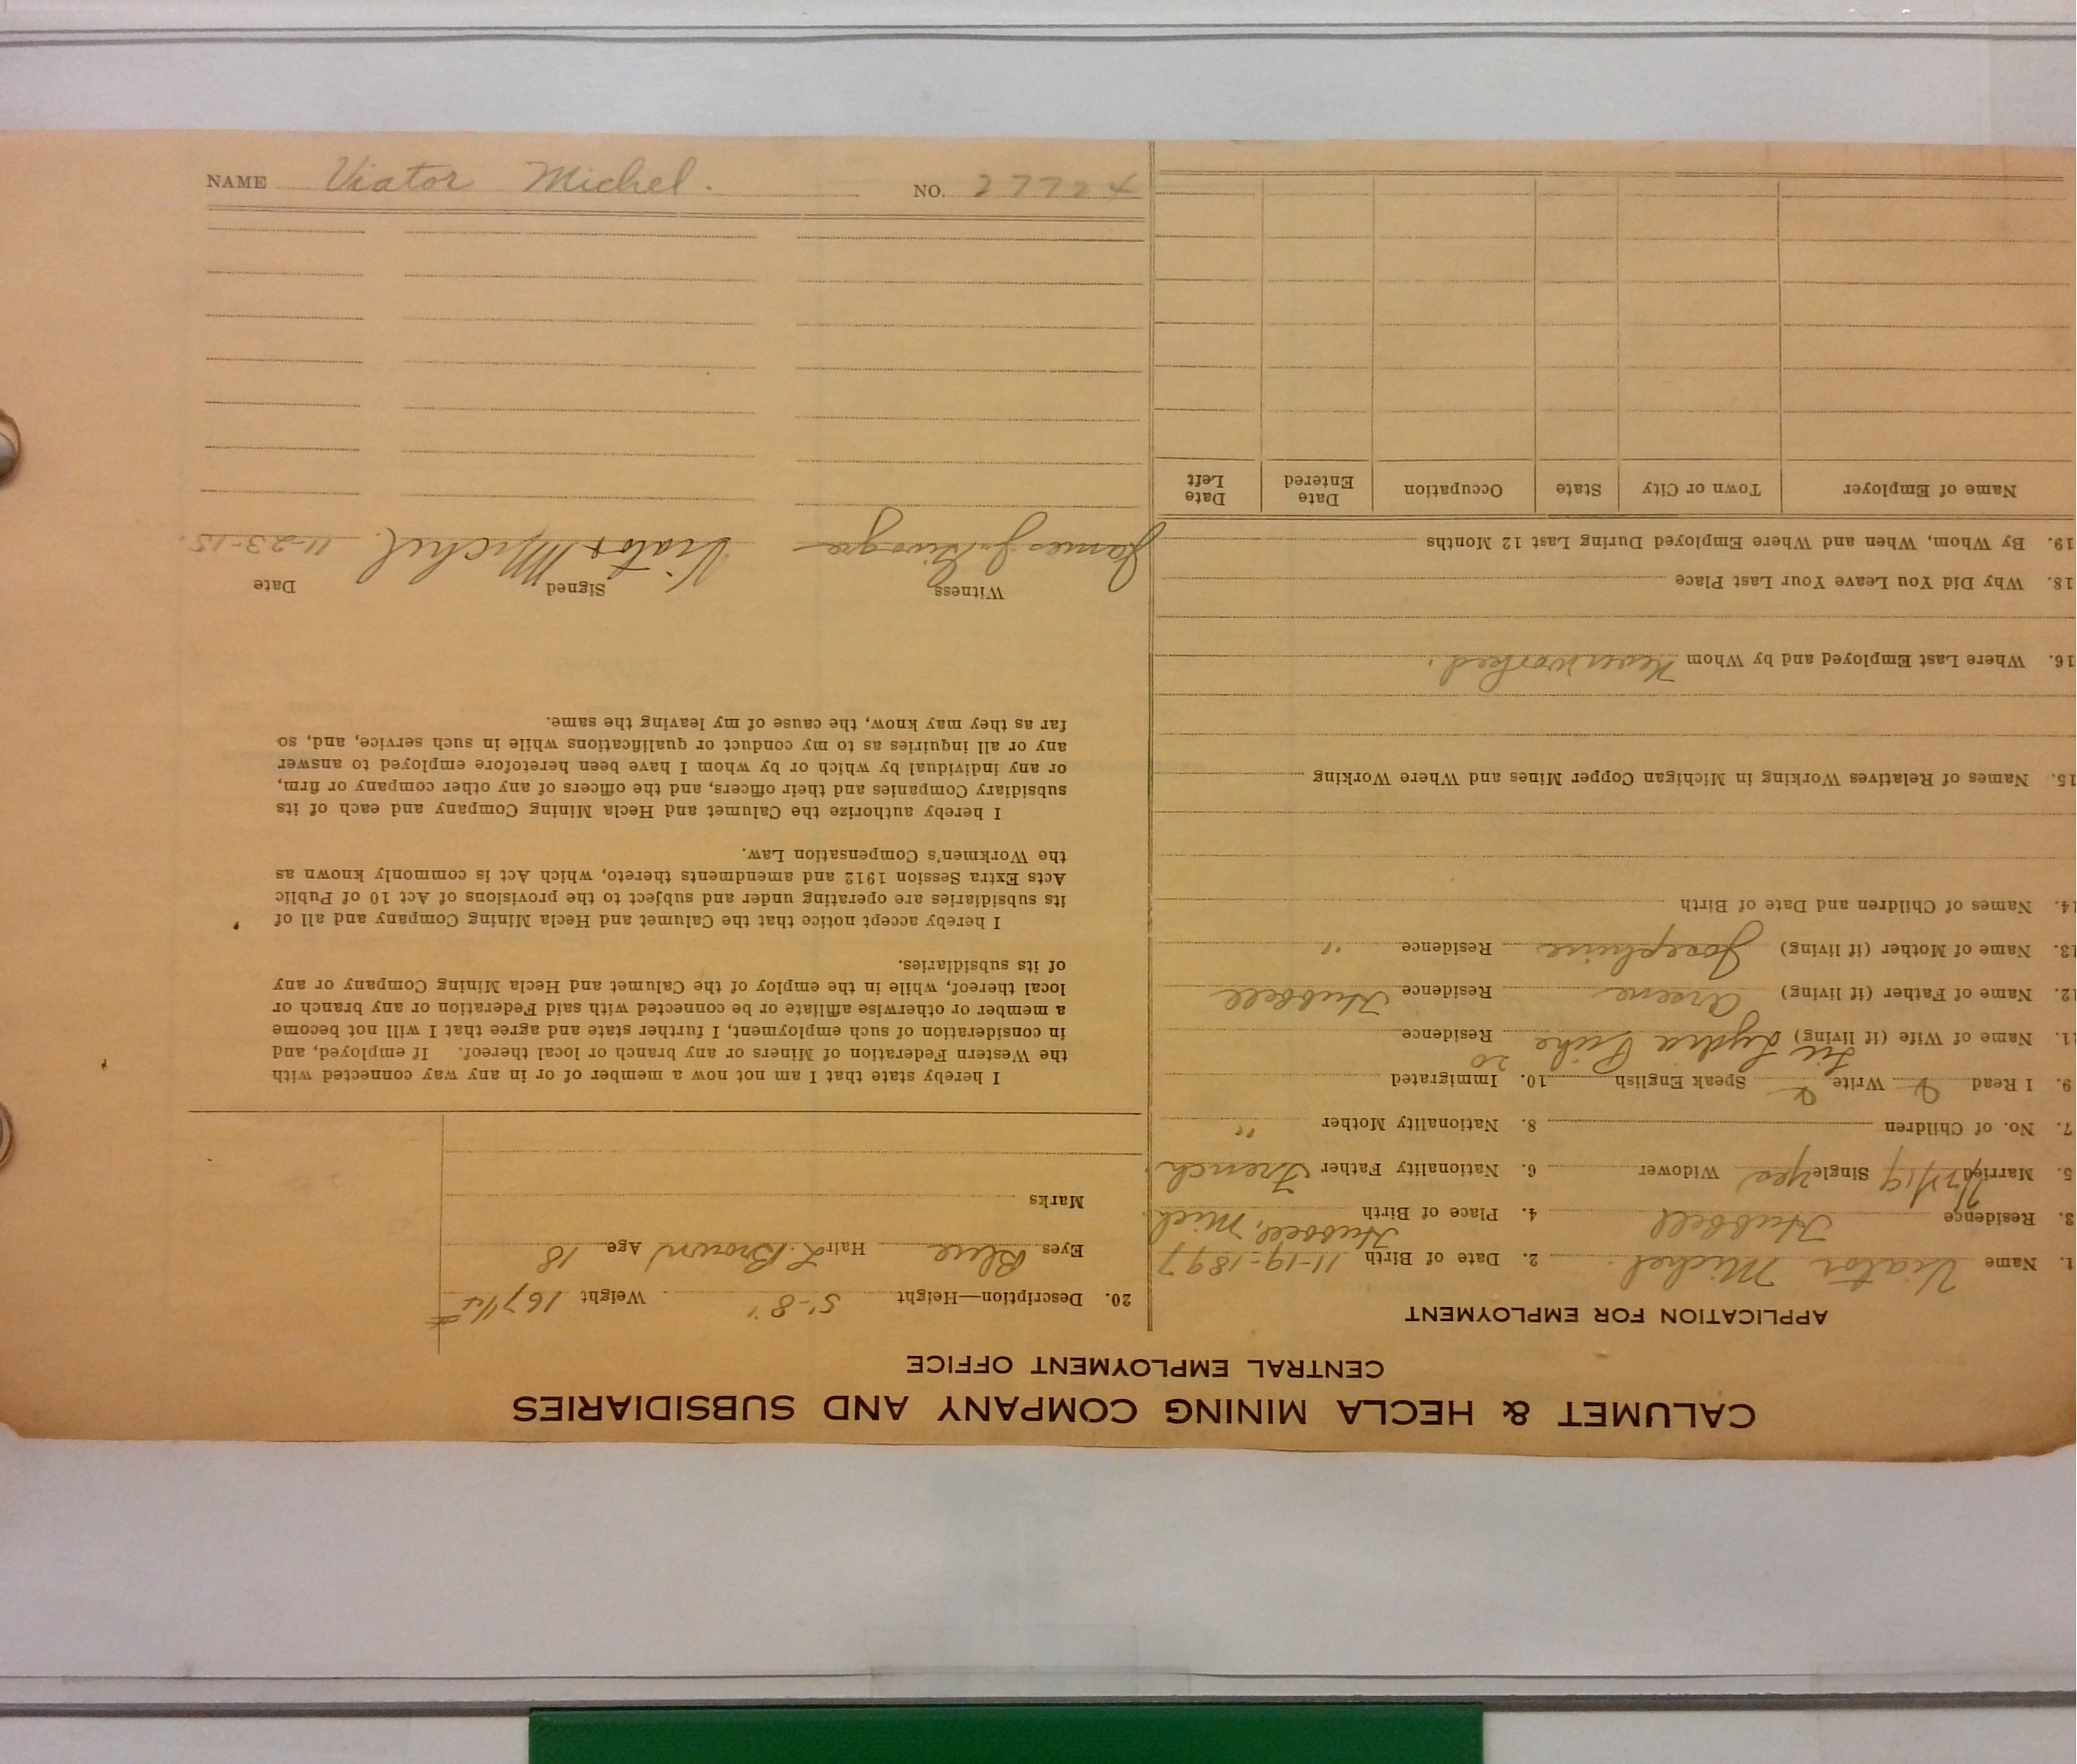 NAME Viator Michel. NO. 27724
CALUMET & HECLA MINING COMPANY AND SUBSIDIARIES
CENTRAL EMPLOYMENT OFFICE
APPLICATION FOR EMPLOYMENT
1. Name Viator Michel. 2. Date of Birth 11-19-1897
3. Residence Hubbell 4. Place of Birth Hubbell, Mich.
5. Married Single yes Widower 6. Nationality Father French.
7. No. of Children 8. Nationality Mother "
9. I Read Write Speak English 10. Immigrated
11. Name of Wife (if living) Lydia Residence
12. Name of Father (if living) Residence Hubbell
13. Name of Mother (if living) Josephine Residence "
14. Names of Children and Date of Birth
15. Names of Relatives Working in Michigan Copper Mines and Where Working
16. Where Last Employed and by Whom Never worked.
18. Why Did You Leave Your Last Place
19. By Whom, When and Where Employed During Last 12 Months
Name of Employer Town or City State Occupation Date Entered Date Left
20. Description—Height 5'-8" Weight 167
Eyes Blue Hair L. Brown Age 18
Marks
I hereby state that I am not now a member of or in any way connected with
the Western Federation of Miners or any branch or local thereof. If employed, and
in consideration of such employment, I further state and agree that I will not become
a member or otherwise affiliate or be connected with said Federation or any branch or
local thereof, while in the employ of the Calumet and Hecla Mining Company or any
of its subsidiaries.
I hereby accept notice that the Calumet and Hecla Mining Company and all of
its subsidiaries are operating under and subject to the provisions of Act 10 of Public
Acts Extra Session 1912 and amendments thereto, which Act is commonly known as
the Workmen's Compensation Law.
I hereby authorize the Calumet and Hecla Mining Company and each of its
subsidiary Companies and their officers, and the officers of any other company or firm,
or any individual by which or by whom I have been heretofore employed to answer
any or all inquiries as to my conduct or qualifications while in such service, and, so
far as they may know, the cause of my leaving the same.
Witness Signed Date
James Viator Michel. 11-23-15.